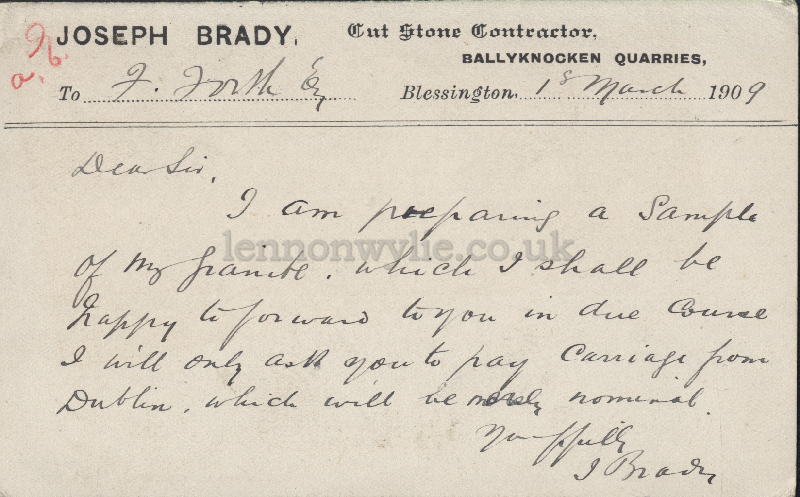 JOSEPH BRADY, Cut Stone Contractor,
BALLYKNOCKEN QUARRIES,
To F. Forth Esq Blessington, 1st March 1909
Dear Sir,
I am preparing a Sample
of my granite. which I shall be
happy to forward to you in due Course
I will only ask you to pay Carriage from
Dublin. which will be merely nominal.
Yrs ffully
J Brady
lennonwylie.co.uk